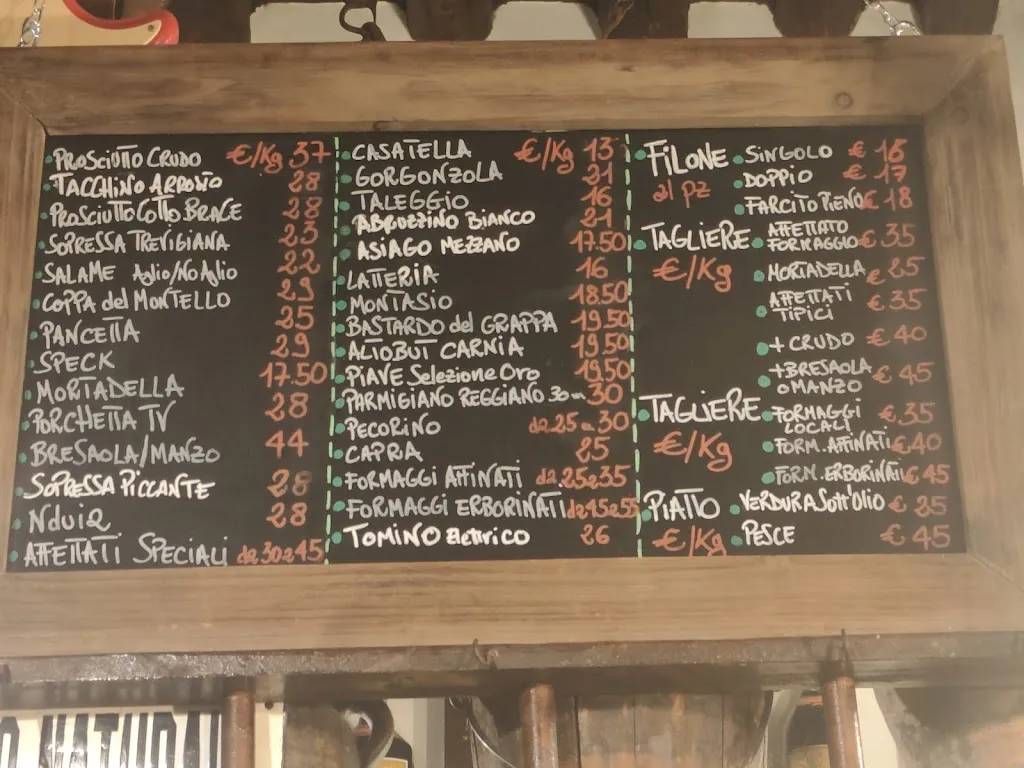 PROSCIUTTO CRUDO €/Kg 37
TACCHINO ARROSTO 28
PROSCIUTTO COTTO BRACE 28
SOPRESSA TREVIGIANA 23
SALAME Aglio/No Aglio 22
COPPA del MONTELLO 29
PANCETTA 25
SPECK 29
MORTADELLA 17.50
PORCHETTA TV 28
BRESAOLA/MANZO 44
SOPRESSA PICCANTE 28
Nduia 28
AFFETTATI SPECIALI da 30 a 45
CASATELLA €/Kg 13
GORGONZOLA 21
TALEGGIO 16
ABRUZZINO BIANCO 21
ASIAGO MEZZANO 17.50
LATTERIA 16
MONTASIO 18.50
BASTARDO del GRAPPA 19.50
ALTOBUT CARNIA 19.50
PIAVE Selezione Oro 19.50
PARMIGIANO REGGIANO 30m 30
PECORINO da 25 a 30
CAPRA 25
FORMAGGI AFFINATI da 25 a 35
FORMAGGI ERBORINATI da 45 a 55
TOMINO Elettrico 26
FILONE SINGOLO €
al pz DOPPIO € 17
FARCITO PIENO € 18
TAGLIERE AFFETTATO
FORMAGGIO € 35
€/Kg MORTADELLA € 25
AFFETTATI
TIPICI € 35
+ CRUDO € 40
+ BRESAOLA
o MANZO € 45
TAGLIERE FORMAGGI
LOCALI € 35
€/Kg FORM. AFFINATI € 40
FORM. ERBORINATI € 45
PIATTO VERDURA Sott'Olio € 25
€/Kg PESCE € 45